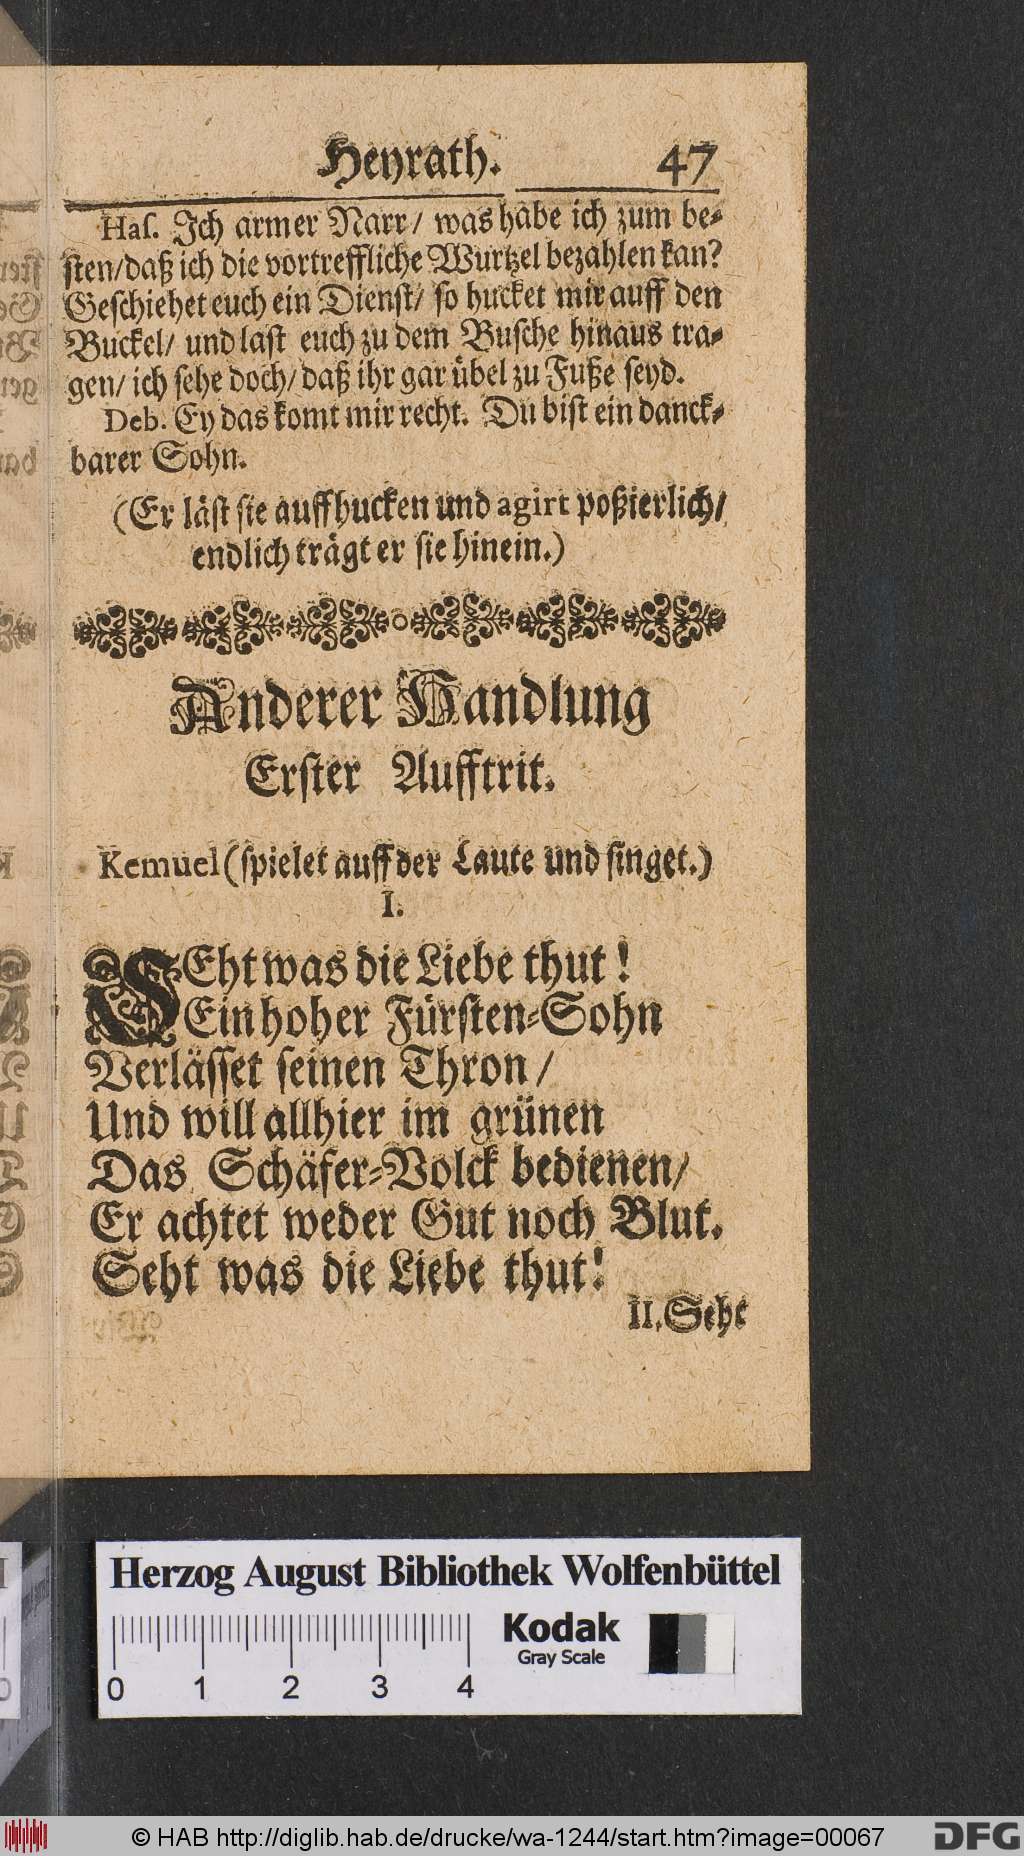 Heyrath. 47
Haſ. Ich armer Narr/ was habe ich zum be-
ſten/daß ich die vortreffliche Wurtzel bezahlen kan?
Geſchiehet euch ein Dienſt/ ſo hucket mir auff den
Buckel/ und laſt euch zu dem Buſche hinaus tra-
gen/ ich ſehe doch/ daß ihr gar übel zu Fuße ſeyd.
Deb. Ey das komt mir recht. Du biſt ein danck-
barer Sohn.
(Er läſt ſie auffhucken und agirt poßierlich/
endlich trägt er ſie hinein.)
Anderer Handlung
Erſter Aufftrit.
Kemuel (ſpielet auff der Laute und ſinget.)
I.
SEht was die Liebe thut!
Ein hoher Fürſten-Sohn
Verläſſet ſeinen Thron/
Und will allhier im grünen
Das Schäfer-Volck bedienen/
Er achtet weder Gut noch Blut.
Seht was die Liebe thut!
II. Seht
Herzog August Bibliothek Wolfenbüttel
Kodak
Gray Scale
0 1 2 3 4
© HAB http://diglib.hab.de/drucke/wa-1244/start.htm?image=00067
DFG